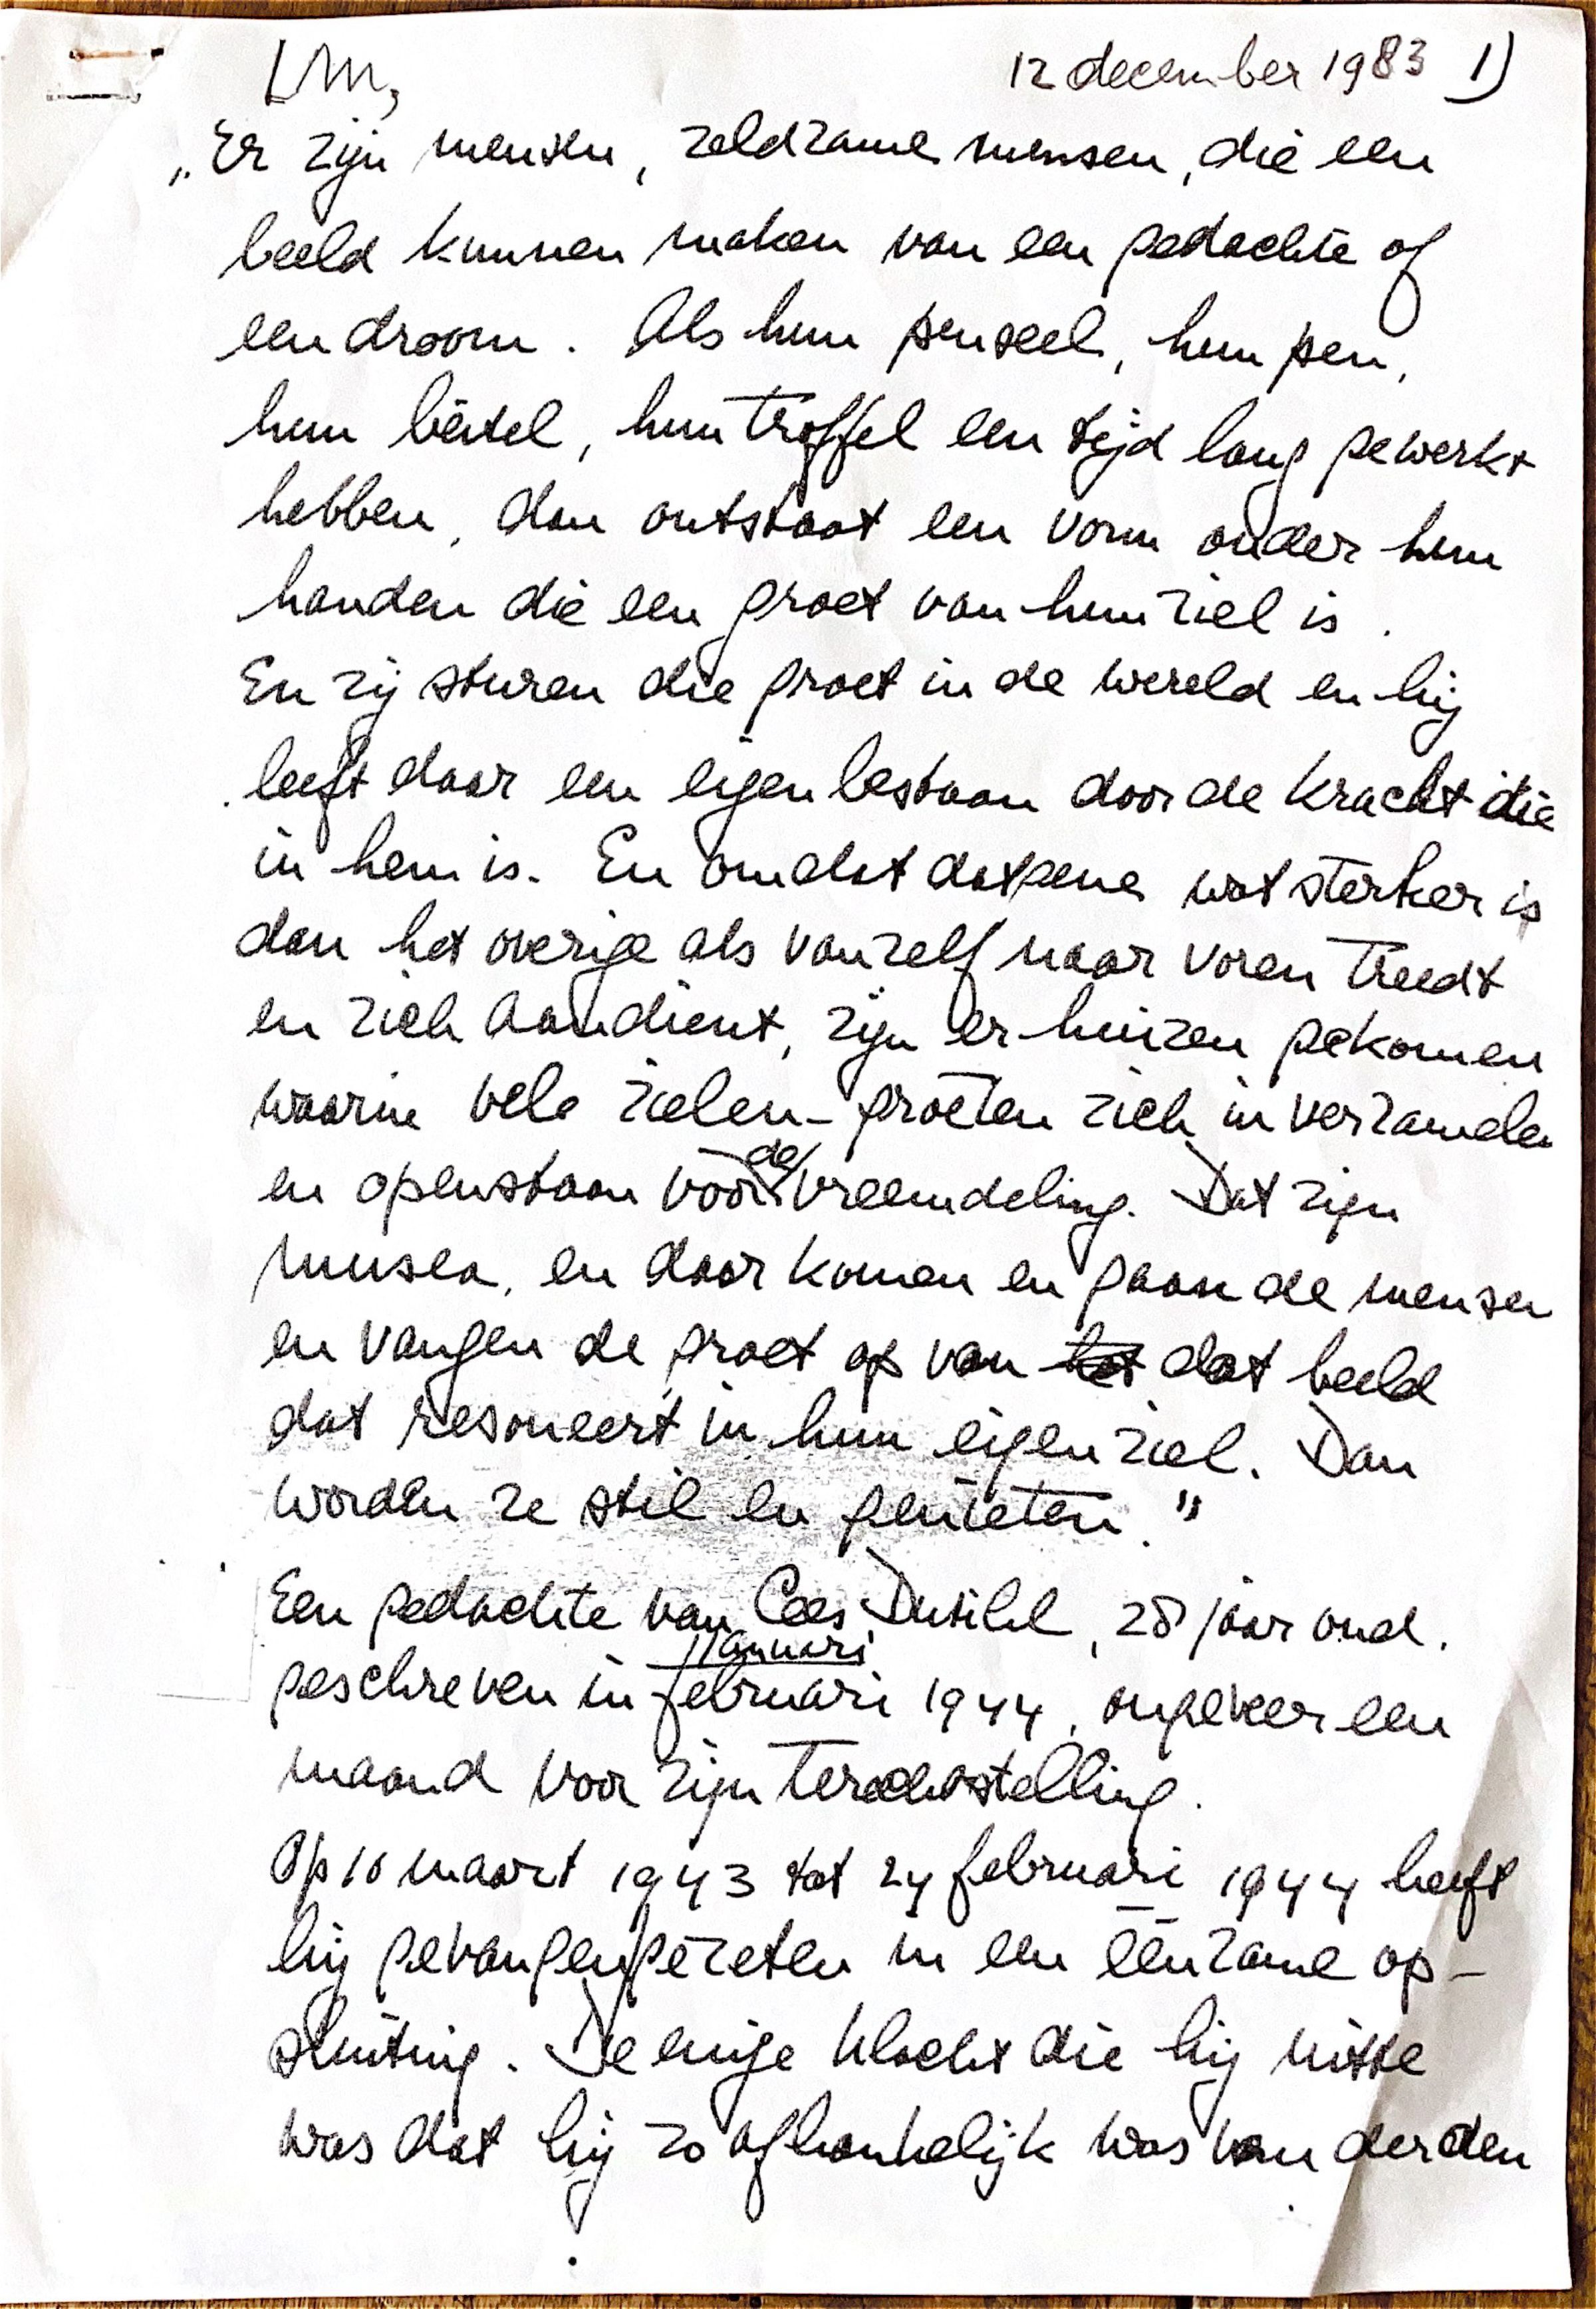 LM,
12 december 1983 1)
„Er zijn mensen, zeldzame mensen, die een
beeld kunnen maken van een gedachte of
een droom. Als hun penseel, hun pen,
hun beitel, hun troffel een tijd lang gewerkt
hebben, dan ontstaat een vorm onder hun
handen die een groet van hun ziel is.
En zij sturen die groet in de wereld en hij
leeft daar een eigen bestaan door de kracht die
in hem is. En omdat datgene wat sterker is
dan het overige als vanzelf naar voren treedt
en zich aandient, zijn er huizen gekomen
waarin vele zielen-groeten zich in verzamelen
en openstaan voor de vreemdeling. Dat zijn
musea, en daar komen en gaan de mensen
en vangen de groet op van het dat beeld
dat resoneert in hun eigen ziel. Dan
worden ze stil en genieten."
Een gedachte van Cees Dutilh, 28 jaar oud.
januari
geschreven in februari 1944, ongeveer een
maand voor zijn terechtstelling.
Op 10 maart 1943 tot 24 februari 1944 heeft
hij gevangen gezeten in een eenzame op-
sluiting. De enige klacht die hij uitte
was dat hij zo afhankelijk was van derden